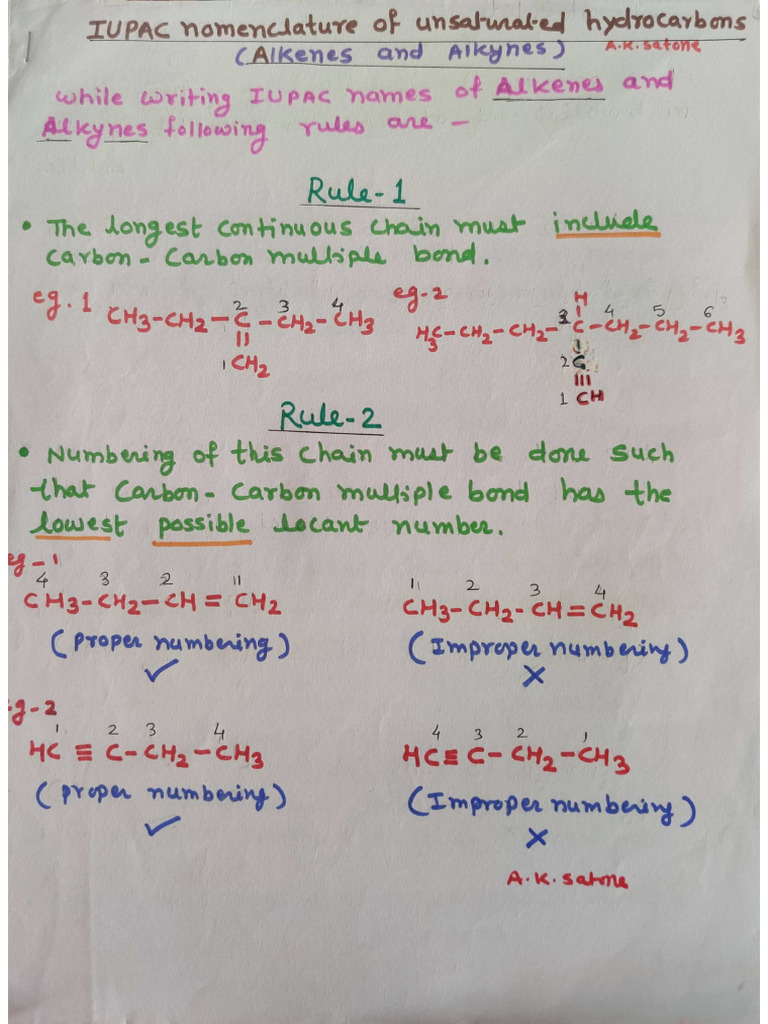 IUPAC nomenclature of unsaturated hydrocarbons
(Alkenes and Alkynes) A.K.Satone
While writing IUPAC names of Alkenes and
Alkynes following rules are –
Rule-1
• The longest continuous chain must include
carbon-carbon multiple bond.
eg.1
2 3 4
CH3-CH2-C-CH2-CH3
||
1 CH2
eg-2
H
3 4 5 6
H3C-CH2-CH2-C-CH2-CH2-CH3
|
2 C
≡
1 CH
Rule-2
• Numbering of this chain must be done such
that carbon-carbon multiple bond has the
lowest possible locant number.
eg-1
4 3 2 1
CH3-CH2-CH=CH2
(proper numbering)
✓
1 2 3 4
CH3-CH2-CH=CH2
(Improper numbering)
×
eg-2
1 2 3 4
HC≡C-CH2-CH3
(proper numbering)
✓
4 3 2 1
HC≡C-CH2-CH3
(Improper numbering)
×
A.K.Satone